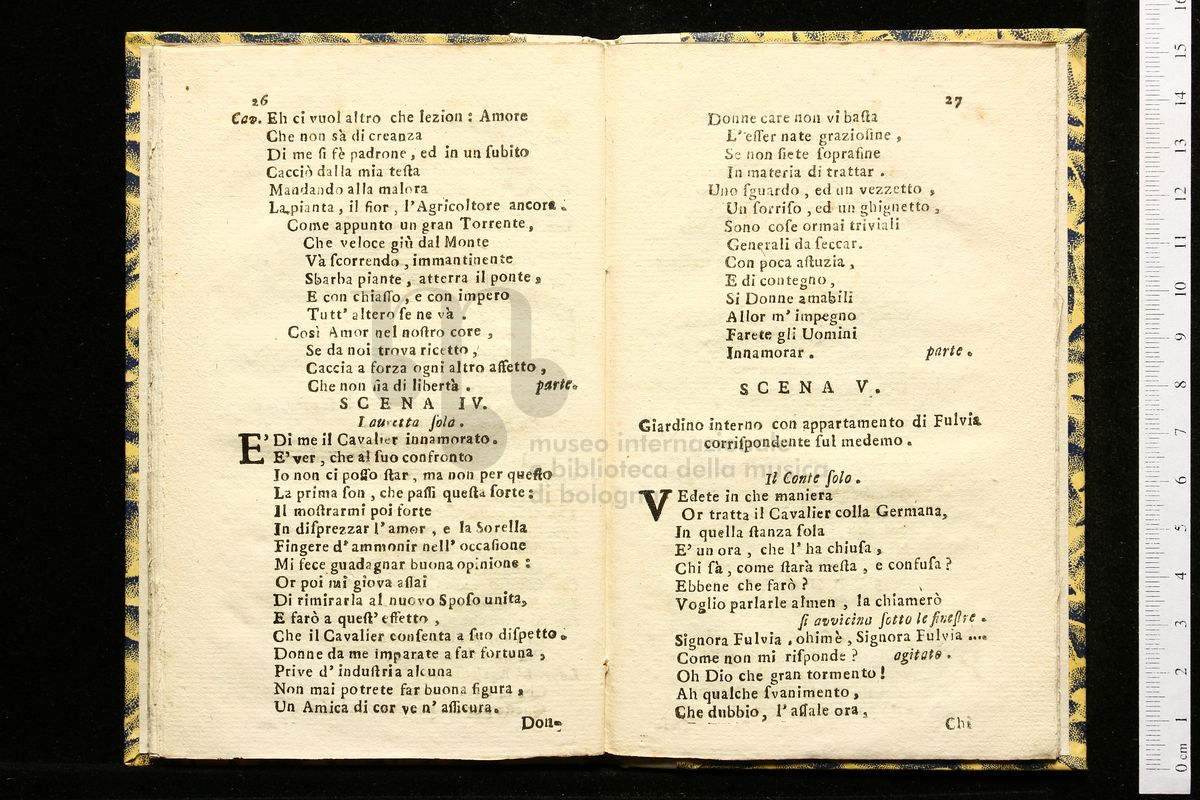 26
Cav. Eh ci vuol altro che lezion : Amore
Che non sà di creanza
Di me ſi fè padrone , ed in un ſubito
Cacciò dalla mia teſta
Mandando alla malora
La pianta , il fior , l'Agricoltore ancora .
Come appunto un gran Torrente ,
Che veloce giù dal Monte
Và ſcorrendo , immantinente
Sbarba piante , atterra il ponte ,
E con chiaſſo , e con impero
Tutt' altero ſe ne và .
Così Amor nel noſtro core ,
Se da noi trova ricetto ,
Caccia a forza ogni altro affetto ,
Che non ſia di libertà . parte.
SCENA IV.
Lauretta ſola .
E' Di me il Cavalier innamorato .
E' ver , che al ſuo confronto
Io non ci poſſo ſtar , ma non per queſto
La prima ſon , che paſſi queſta ſorte :
Il moſtrarmi poi forte
In diſprezzar l'amor , e la Sorella
Fingere d'ammonir nell' occaſione
Mi fece guadagnar buona opinione :
Or poi mi giova aſſai
Di rimirarla al nuovo Spoſo unita,
E farò a queſt' effetto ,
Che il Cavalier conſenta a ſuo diſpetto .
Donne da me imparate a far fortuna ,
Prive d' induſtria alcuna
Non mai potrete far buona figura ,
Un Amica di cor ve n' aſſicura.
Don-
27
Donne care non vi baſta
L' eſſer nate grazioſine ,
Se non ſiete ſopraſine
In materia di trattar .
Uno ſguardo , ed un vezzetto ,
Un ſorriſo , ed un ghignetto ,
Sono coſe ormai triviali
Generali da ſeccar.
Con poca aſtuzia ,
E di contegno ,
Si Donne amabili
Allor m' impegno
Farete gli Uomini
Innamorar . parte .
SCENA V.
Giardino interno con appartamento di Fulvia
corriſpondente ſul medemo .
Il Conte ſolo .
VEdete in che maniera
Or tratta il Cavalier colla Germana,
In quella ſtanza ſola
E' un ora , che l' ha chiuſa ,
Chi ſà , come ſtarà meſta , e confuſa ?
Ebbene che farò ?
Voglio parlarle almen , la chiamerò
ſi avvicina ſotto le fineſtre .
Signora Fulvia , ohimè , Signora Fulvia ....
Come non mi riſponde ? agitato .
Oh Dio che gran tormento !
Ah qualche ſvanimento ,
Che dubbio, l' aſſale ora ,
Chi
museo internazionale
e biblioteca della musica
di bologna
0 cm 1 2 3 4 5 6 7 8 9 10 11 12 13 14 15 16